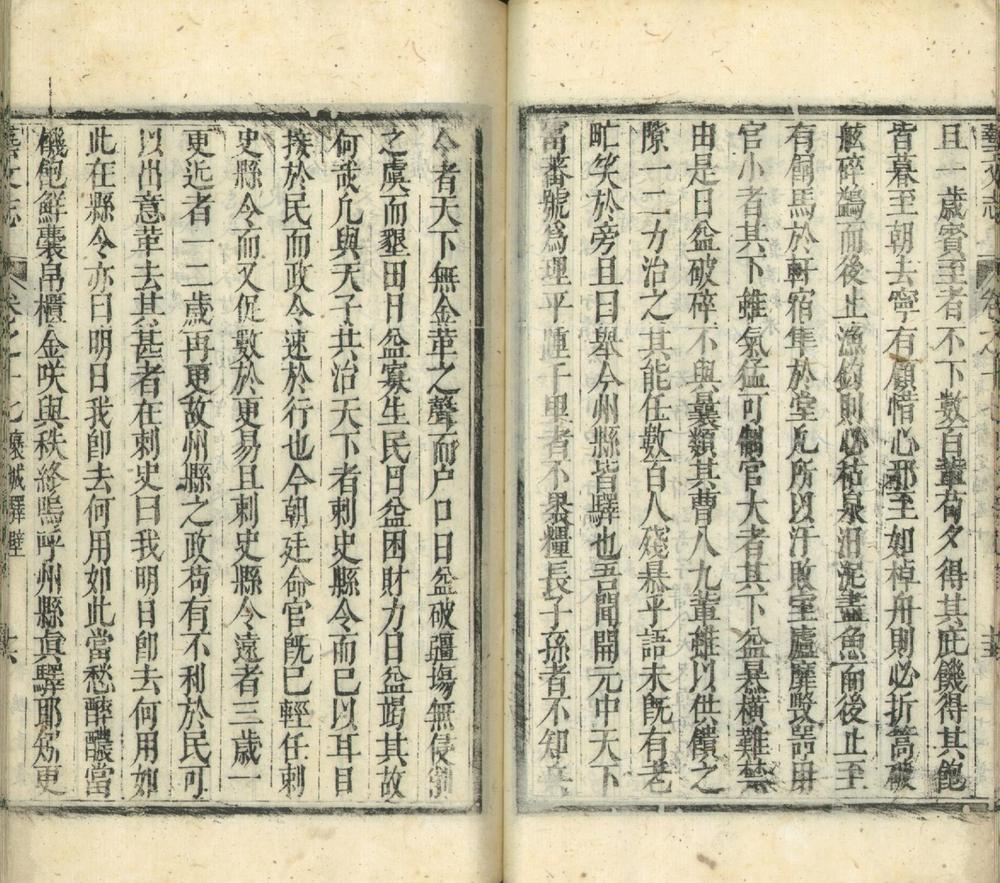 藝文志
且一歲賓至者不下數百輩苟夕得其庇饑得其飽
皆暮至朝去寧有顧惜心邪至如棹舟則必折篙破
舷碎鷁而後止漁釣則必枯泉汨泥盡魚而後止至
有飼馬於軒宿隼於堂凡所以汙敗室廬糜毀器用
官小者其下雖氣猛可制官大者其下益暴橫難禁
由是日益破碎不與曩類其曹八九輩雖以供饋之
隙一二力治之其能任數百人殘暴乎語未既有老
甿笑於旁且曰舉今州縣皆驛也吾聞開元中天下
富蕃號爲理平踵千里者不裹糧長子孫者不知兵
今者天下無金革之聲而户口日益破疆場無侵削
之虞而墾田日益寡生民日益困財力日益竭其故
何哉凡與天子共治天下者刺史縣令而已以耳目
接於民而政令速於行也今朝廷命官旣已輕任刺
史縣令而又促數於更易且刺史縣令遠者三歲一
更近者一二歲再更故州縣之政苟有不利於民可
以出意革去其甚者在刺史曰我明日卽去何用如
此在縣令亦曰明日我卽去何用如此當愁醉醲當
饑飽鮮囊帛櫃金咲與秩終嗚呼州縣眞驛耶矧更
藝文志 卷之十七 襃城驛壁 十六